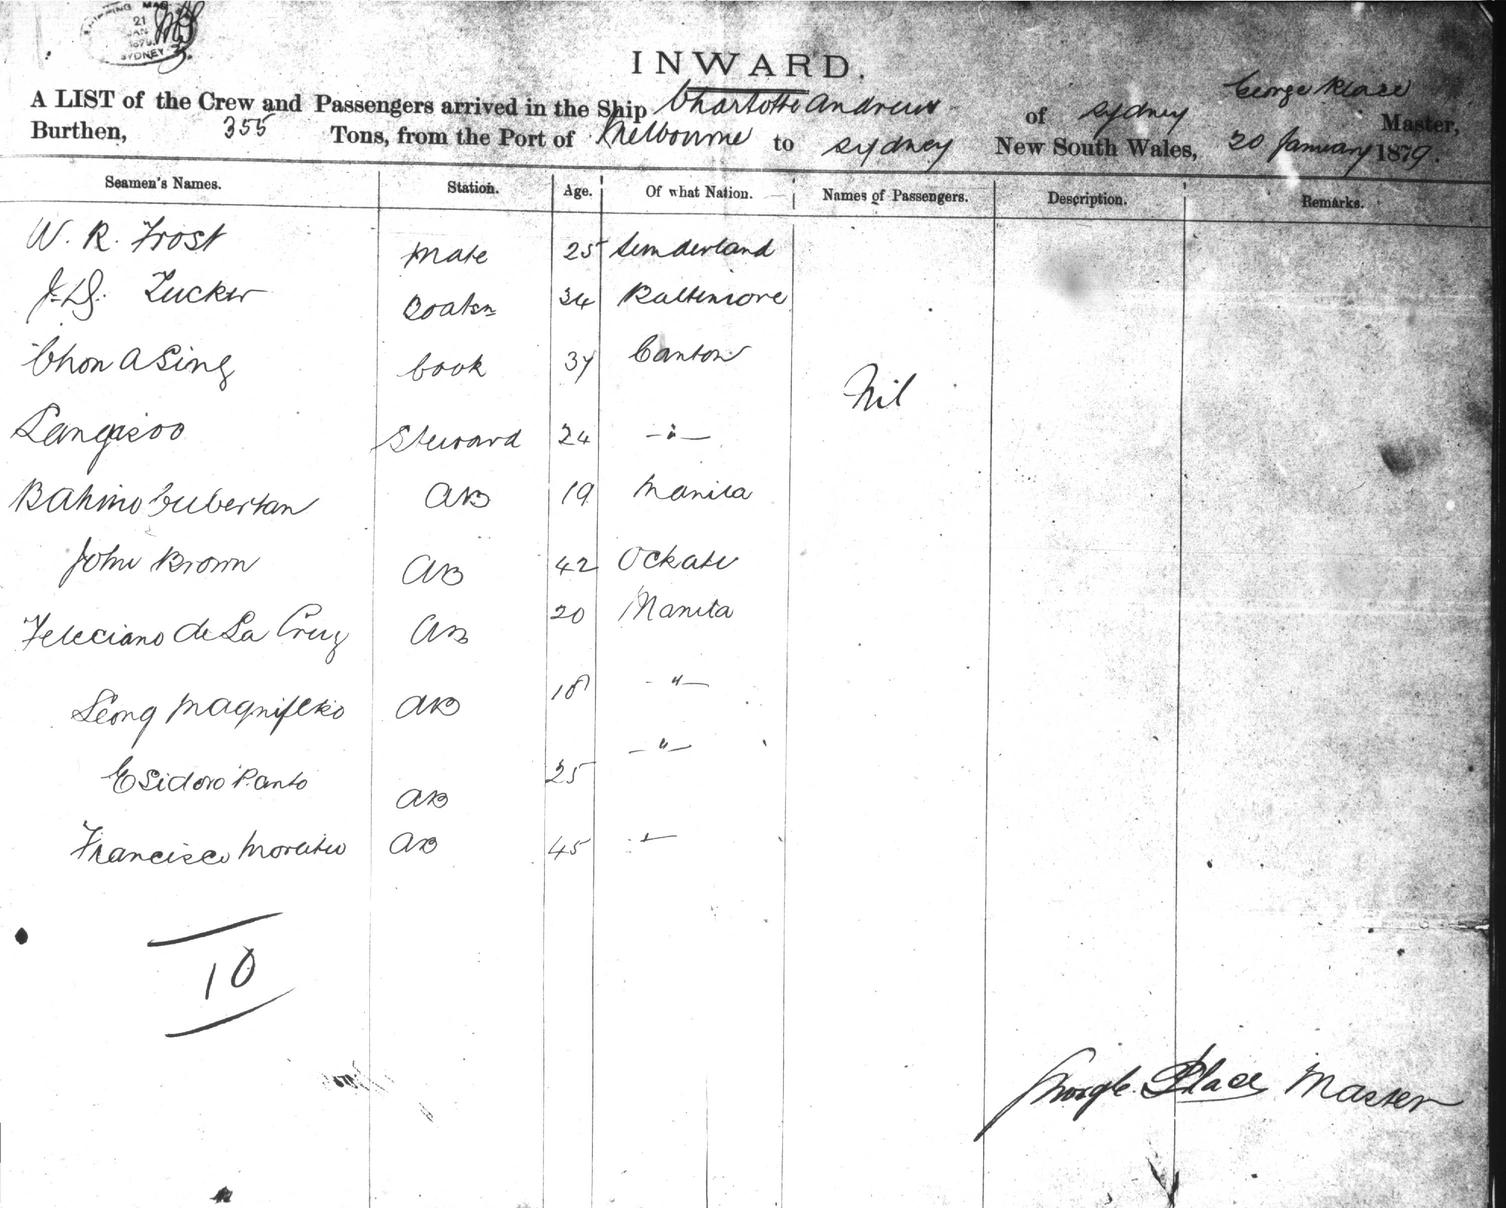 SHIPPING MAS
21
JAN
1879
SYDNEY
INWARD.
A LIST of the Crew and Passengers arrived in the Ship Charlotte Andrews of Sydney George Place Master,
Burthen, 355 Tons, from the Port of Melbourne to Sydney New South Wales, 20 January 1879.
Seamen's Names. Station. Age. Of what Nation. Names of Passengers. Description. Remarks.
W. R. Frost Mate 25 Sunderland
Tucker Boatsn 34 Baltimore
Chon A Sing Cook 37 Canton
Nil
Langasoo Steward 24 —"—
Bahino Cubertan AB 19 Manila
John Brown AB 42 Ockate
Feleciano de La Cruz AB 20 Manila
Leong Magnifico AB 18 —"—
Esidoro Panto AB 25 —"—
Francisco AB 45 —"—
10
George Place Master